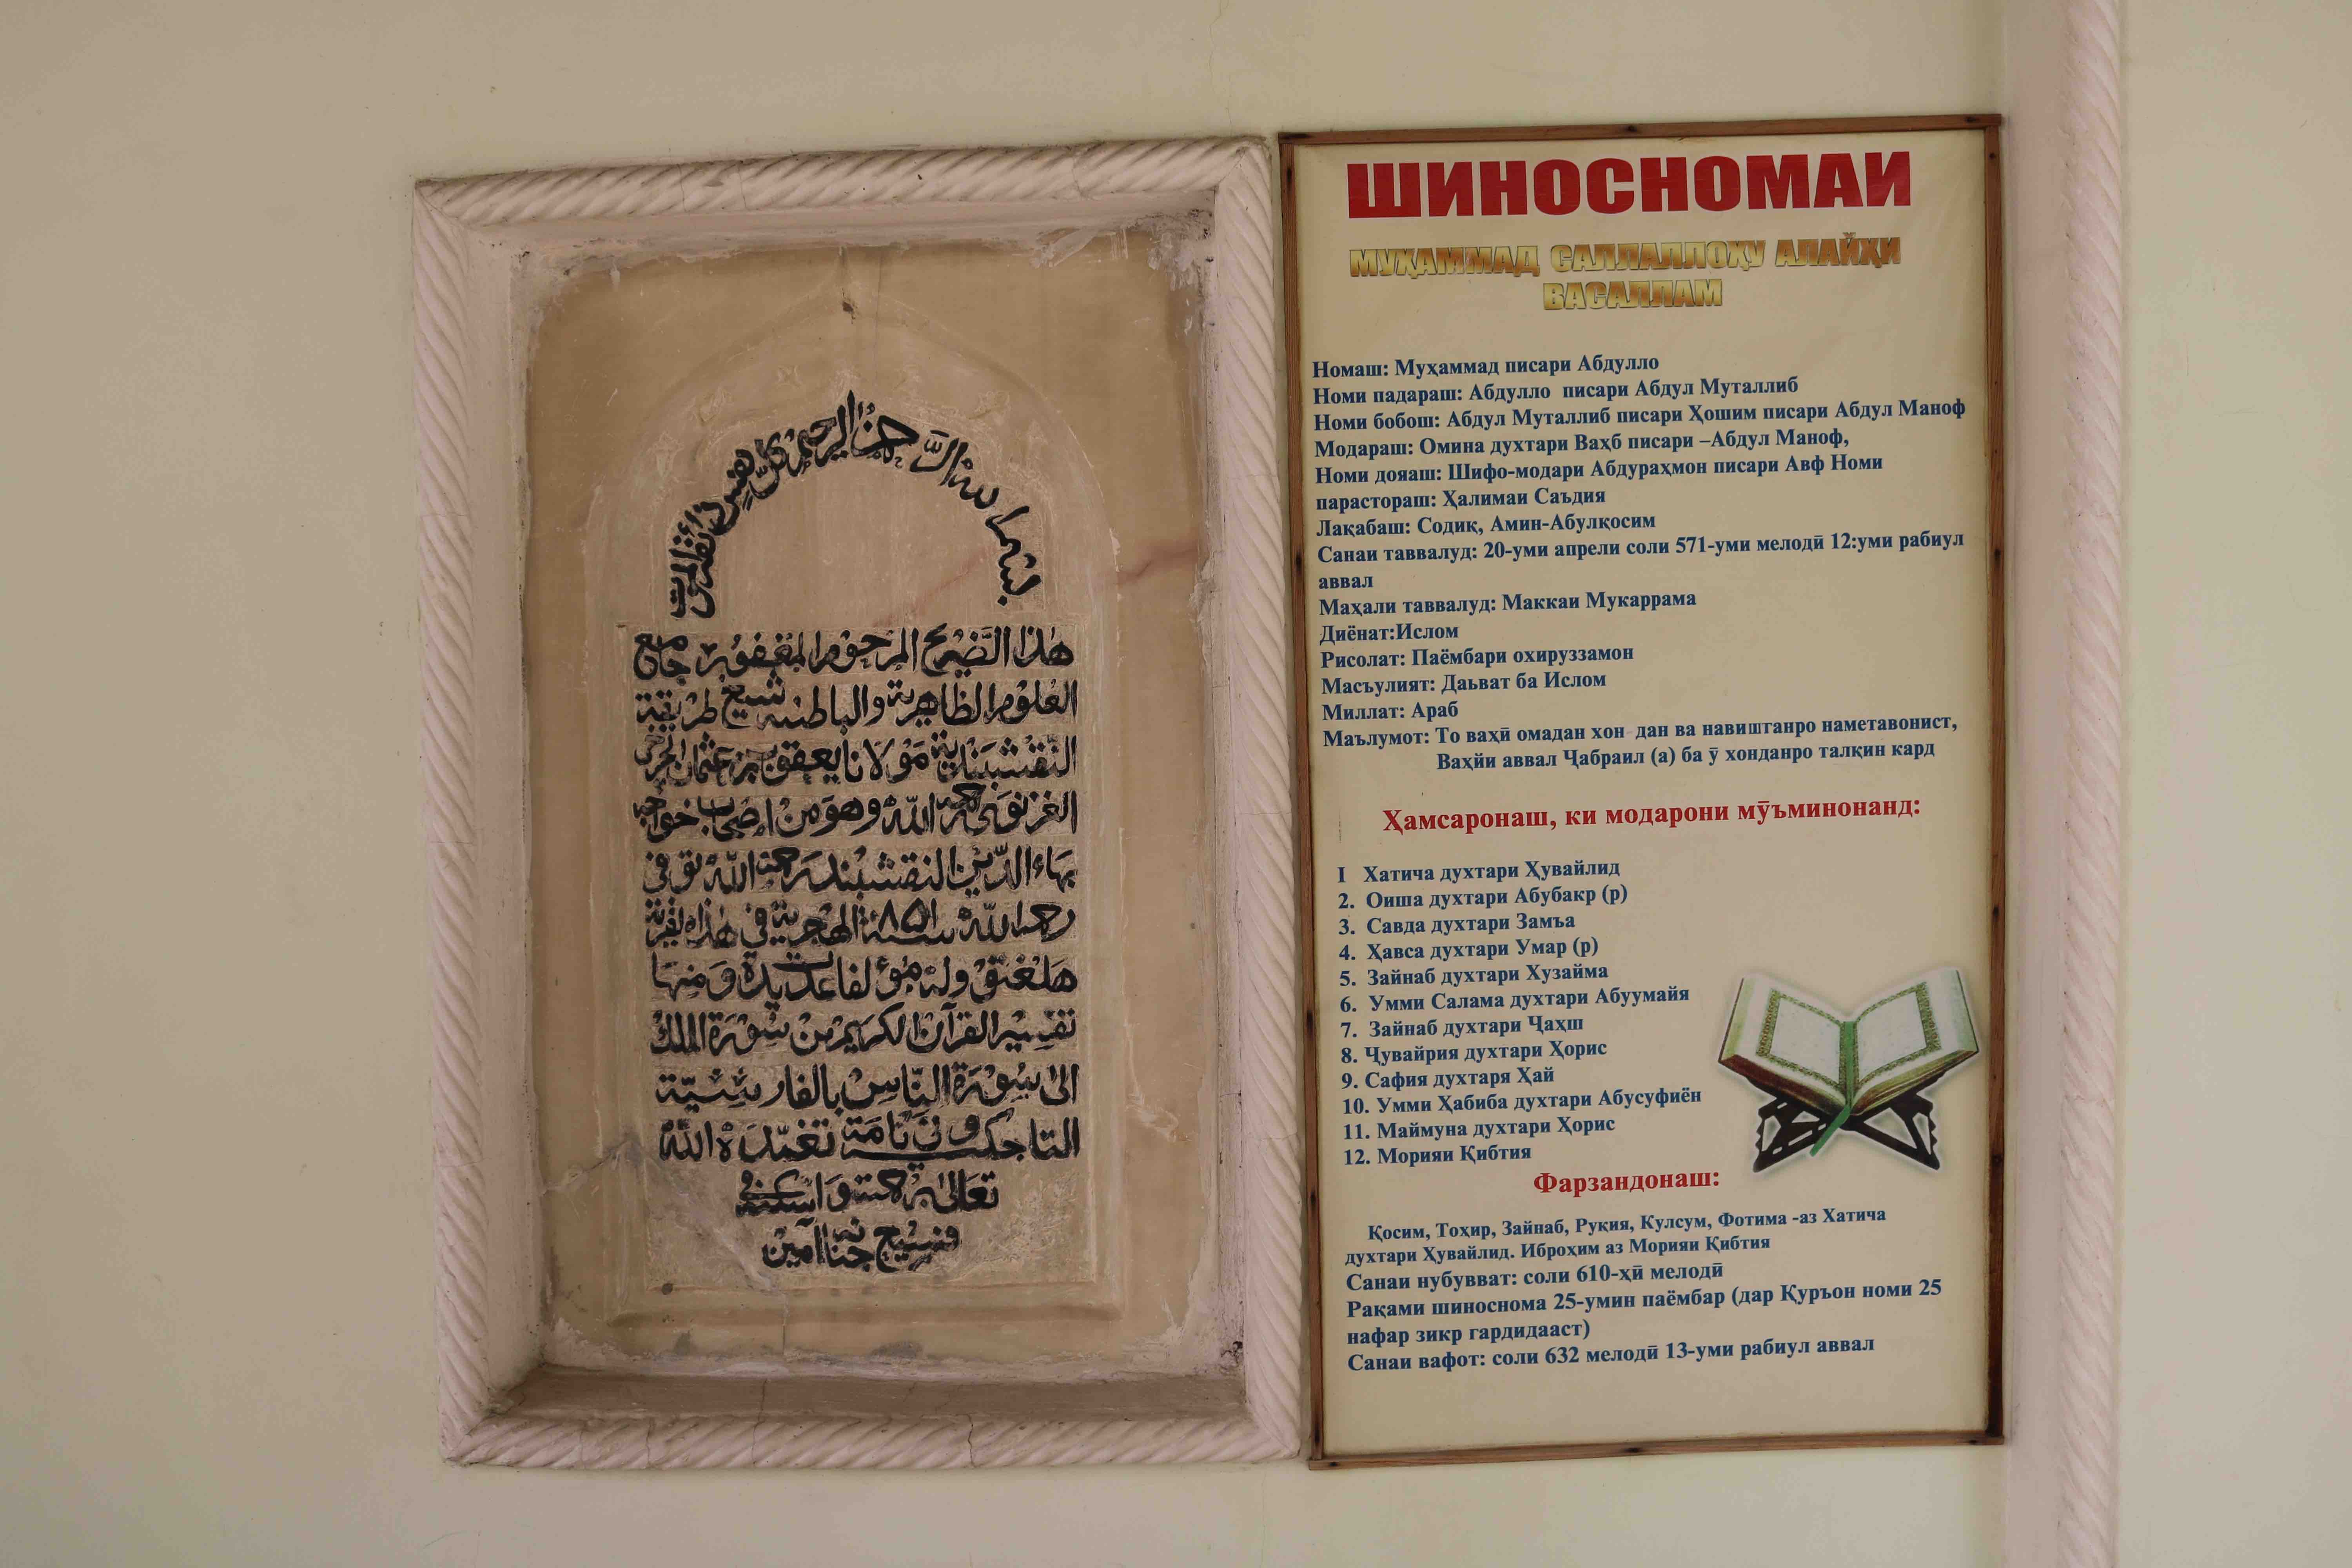 بسم الله الرحمن الرحيم كل نفس ذائقة الموت
هٰذا الضريح المرحوم المغفور جامع
العلوم الظاهرية والباطنية شيخ طريقة
النقشبندية مولانا يعقوب بن عثمان الجرخي
الغزنوي رحمة الله وهو من اصحاب خواجه
بهاء الدين النقشبند رحمة الله توفي
رحمه الله سنة ٨٥١ الهجرية في هذه القرية
هلغتو وله مؤلفا عديدة ومنها
تفسير القرآن الكريم من سورة الملك
الى سورة الناس بالفارسية
التاجكية تغمده الله
تعالى برحمته واسكنه
فسيح جناته آمين
ШИНОСНОМАИ
МУҲАММАД САЛЛАЛЛОҲУ АЛАЙҲИ
ВАСАЛЛАМ
Номаш: Муҳаммад писари Абдулло
Номи падараш: Абдулло писари Абдул Муталлиб
Номи бобош: Абдул Муталлиб писари Ҳошим писари Абдул Маноф
Модараш: Омина духтари Ваҳб писари –Абдул Маноф,
Номи дояаш: Шифо-модари Абдураҳмон писари Авф Номи
парастораш: Ҳалимаи Саъдия
Лақабаш: Содиқ, Амин-Абулқосим
Санаи таввалуд: 20-уми апрели соли 571-уми мелодӣ 12:уми рабиул
аввал
Маҳали таввалуд: Маккаи Мукаррама
Диёнат:Ислом
Рисолат: Паёмбари охируззамон
Масъулият: Даьват ба Ислом
Миллат: Араб
Маълумот: То ваҳӣ омадан хон дан ва навиштанро наметавонист,
Ваҳйи аввал Ҷабраил (а) ба ӯ хонданро талқин кард
Ҳамсаронаш, ки модарони мӯъминонанд:
I Хатича духтари Ҳувайлид
2. Оиша духтари Абубакр (р)
3. Савда духтари Замъа
4. Ҳавса духтари Умар (р)
5. Зайнаб духтари Хузайма
6. Умми Салама духтари Абуумайя
7. Зайнаб духтари Ҷаҳш
8. Ҷувайрия духтари Ҳорис
9. Сафия духтаря Ҳай
10. Умми Ҳабиба духтари Абусуфиён
11. Маймуна духтари Ҳорис
12. Морияи Қибтия
Фарзандонаш:
Қосим, Тоҳир, Зайнаб, Руқия, Кулсум, Фотима -аз Хатича
духтари Ҳувайлид. Иброҳим аз Морияи Қибтия
Санаи нубувват: соли 610-ҳӣ мелодӣ
Рақами шиноснома 25-умин паёмбар (дар Қуръон номи 25
нафар зикр гардидааст)
Санаи вафот: соли 632 мелодӣ 13-уми рабиул аввал